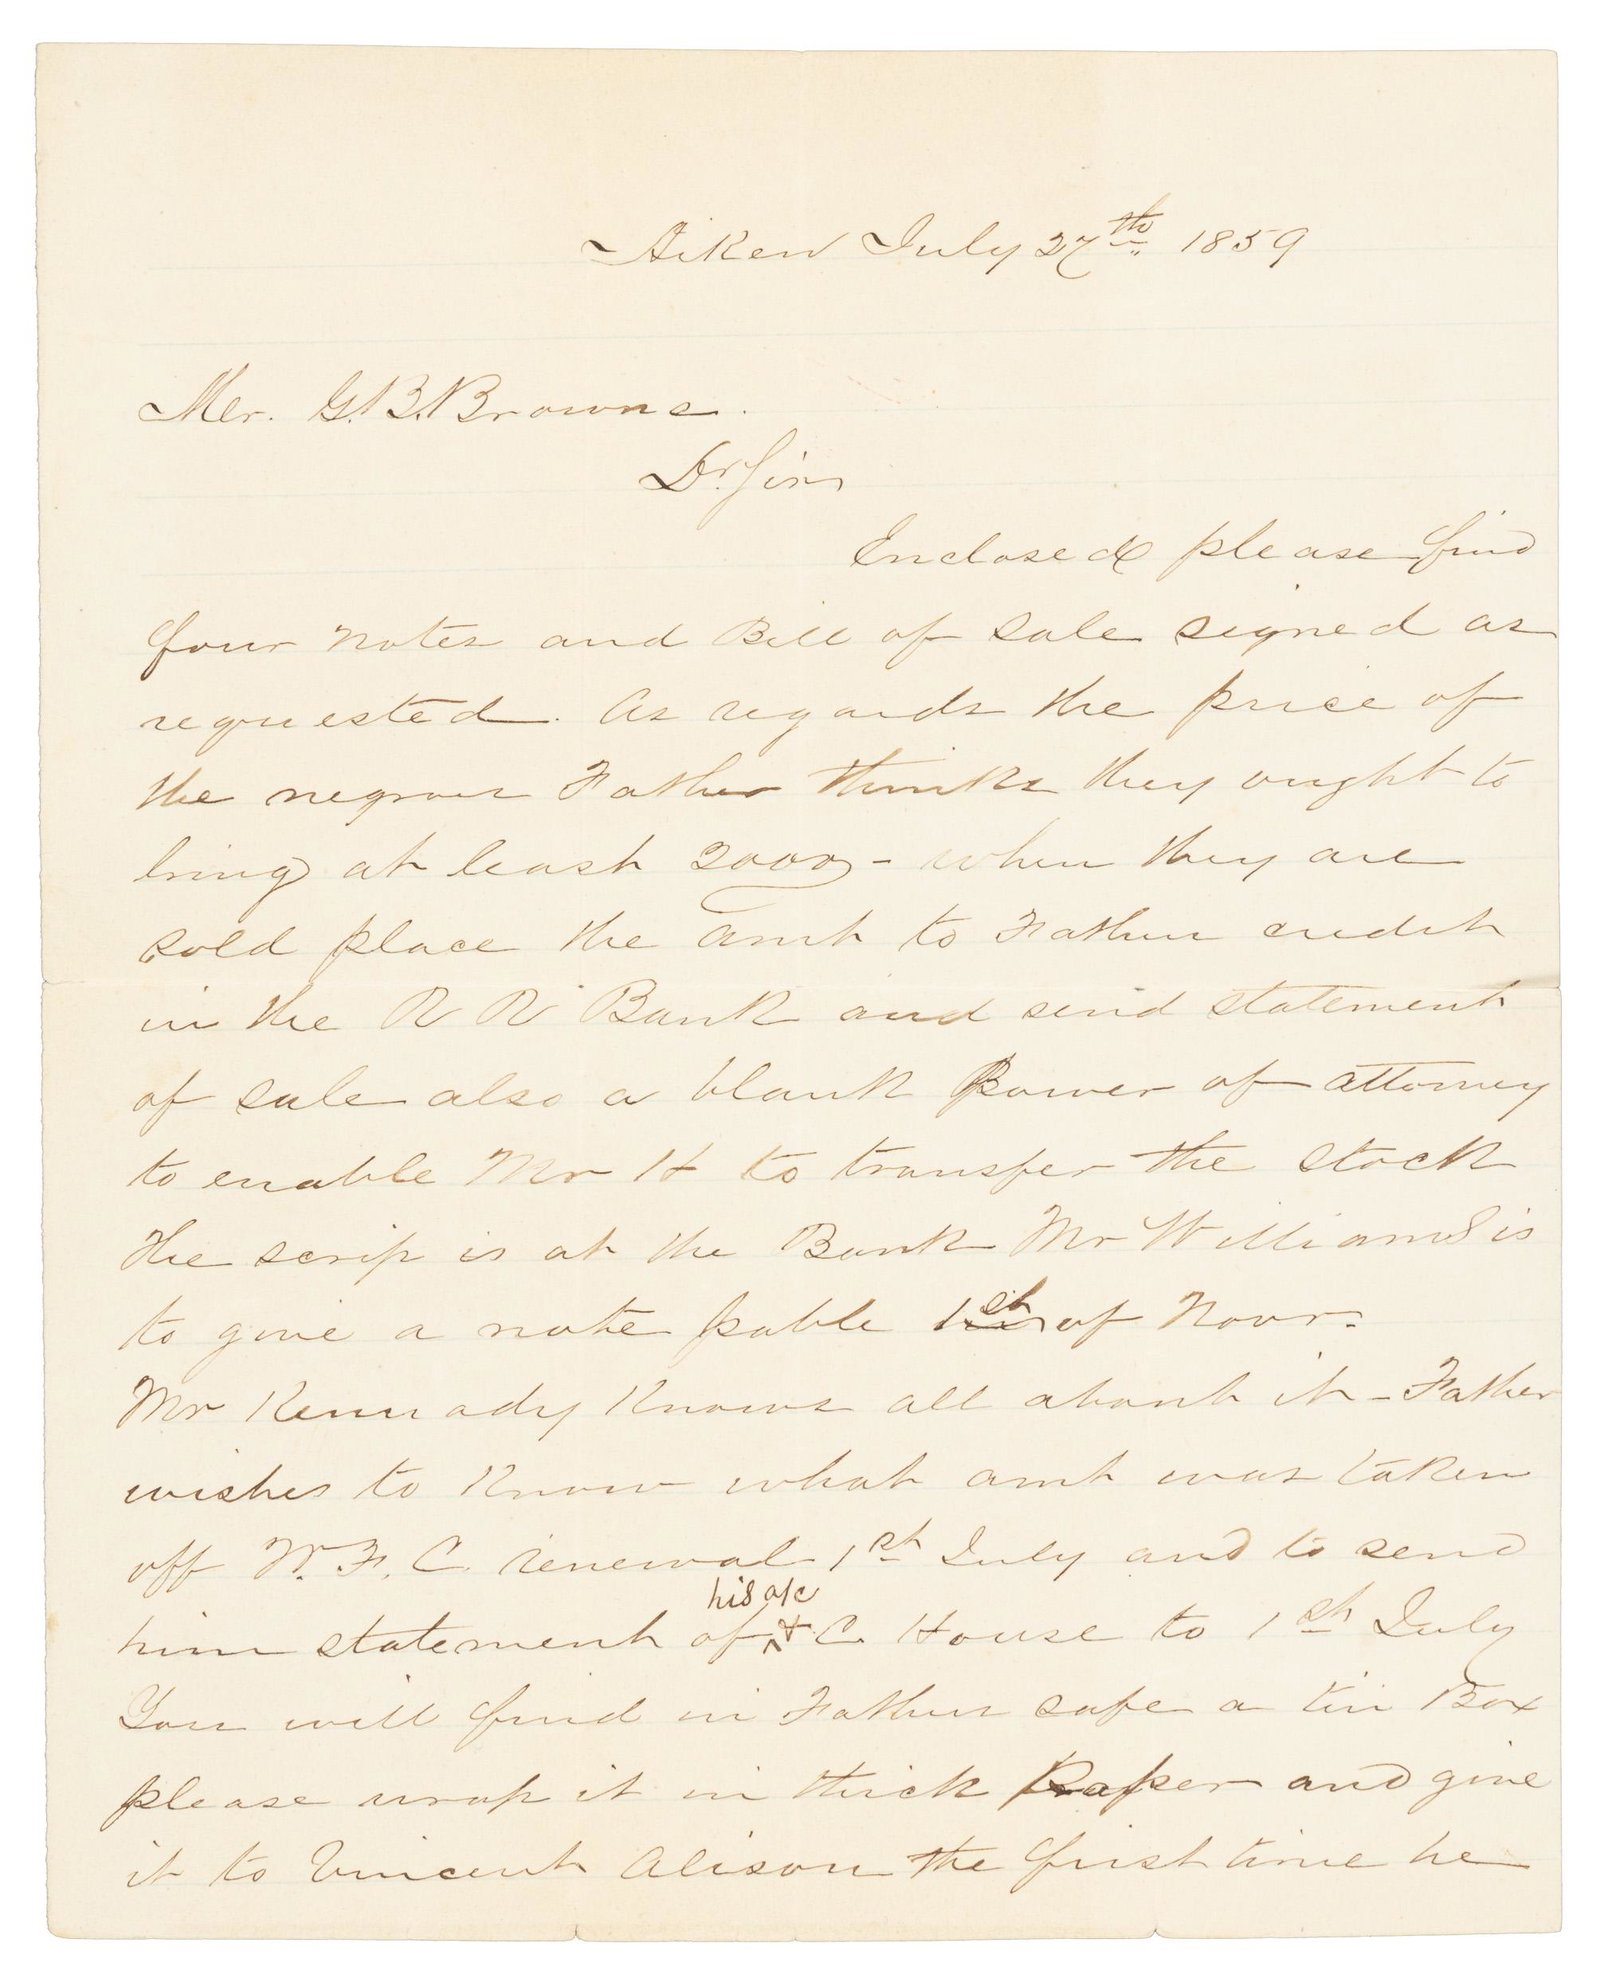 Aiken July 27th 1859
Mr. G. B. Browne.
Dr. Sir
Enclosed please find
four notes and Bill of sale signed as
requested. As regards the price of
the negroes Father thinks they ought to
bring at least 2000 - when they are
sold place the amt to Father credit
in the R R Bank and send statement
of sale also a blank Power of attorney
to enable Mr H to transfer the stock
the scrip is at the Bank Mr Williams is
to give a note pable 1st of Novr.
Mr Kennady Knows all about it - Father
wishes to Know what amt was taken
off W. F. C. renewal 1st July and to send
his a/c
him statement of & C. House to 1st July
You will find in Father safe a tin Box
please wrap it in thick Paper and give
it to Vincent Alison the first time he